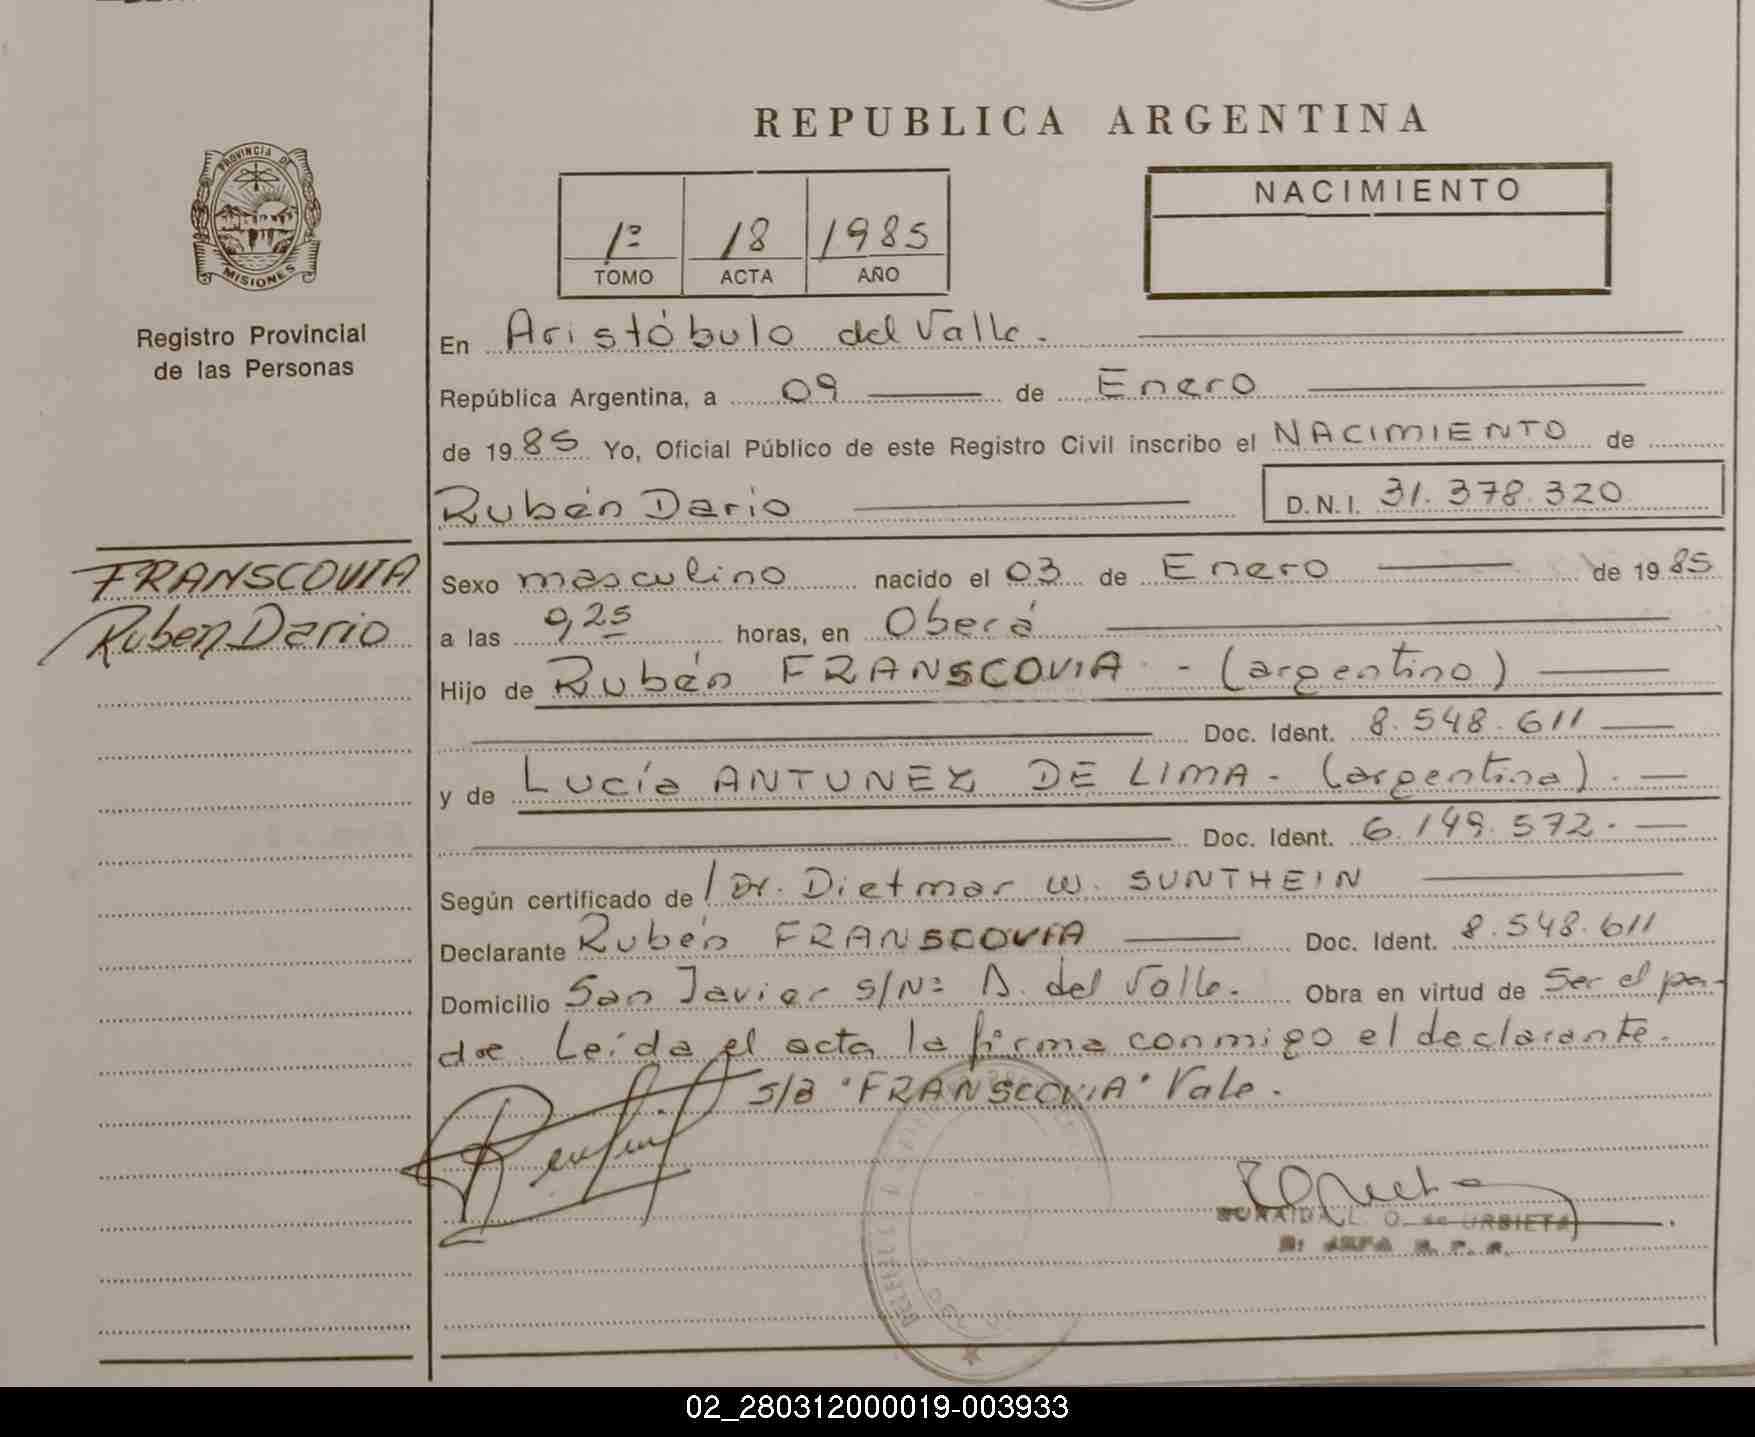 REPUBLICA ARGENTINA
PROVINCIA DE
MISIONES
Registro Provincial
de las Personas
1º 18 1985
TOMO ACTA AÑO
NACIMIENTO
En Aristóbulo del Valle.
República Argentina, a 09 de Enero
de 1985 Yo, Oficial Público de este Registro Civil inscribo el NACIMIENTO de
Rubén Dario D.N.I. 31.378.320
FRANSCOVIA
Ruben Dario
Sexo masculino nacido el 03 de Enero de 1985
a las 9,25 horas, en Oberá
Hijo de Rubén FRANSCOVIA - (argentino)
Doc. Ident. 8.548.611
y de Lucía ANTUNEZ DE LIMA - (argentina).
Doc. Ident. 6.149.572.
Según certificado de Dr. Dietmar W. SUNTHEIN
Declarante Rubén FRANSCOVIA Doc. Ident. 8.548.611
Domicilio San Javier S/Nº A. del Valle. Obra en virtud de Ser el pa-
dre. Leída el acta la firma conmigo el declarante.
S/B "FRANSCOVIA" Vale.
L. O. de URBIETA
02_280312000019-003933